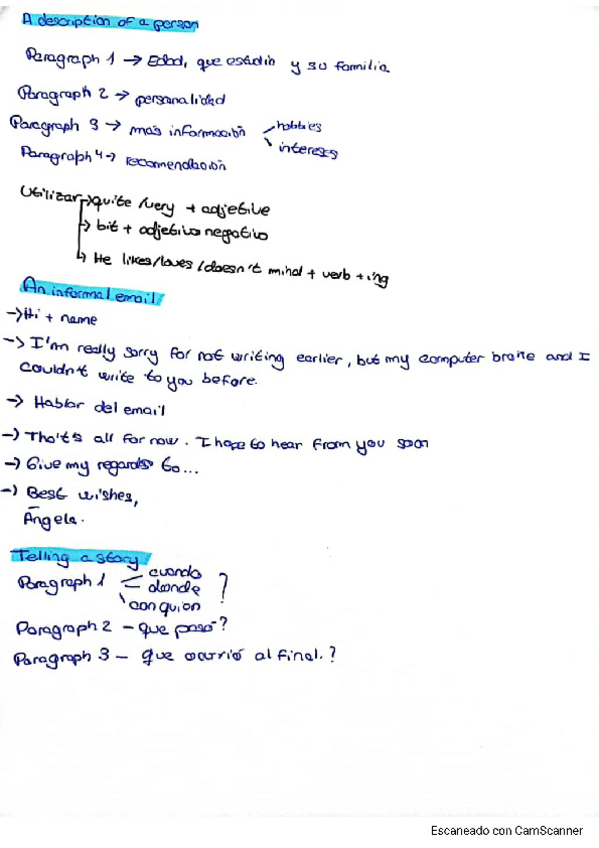 A description of a person
Paragraph 1 → Edad, que estudia y su familia.
Paragraph 2 → personalidad
Paragraph 3 → más información
hobbies
intereses
Paragraph 4 → recomendación
Utilizar → quite /very + adjetive
→ bit + adjetivo negativo
→ He likes/loves /doesn't mind + verb + ing
An informal email
→ Hi + name
→ I'm really sorry for not writing earlier, but my computer broke and I
couldn't write to you before.
→ Hablar del email
→ That's all for now. I hope to hear from you soon
→ Give my regards to...
→ Best wishes,
Ángela.
Telling a story
Paragraph 1
cuando
donde
con quien
?
Paragraph 2 - que pasó?
Paragraph 3 - que ocurrió al final.?
Escaneado con CamScanner